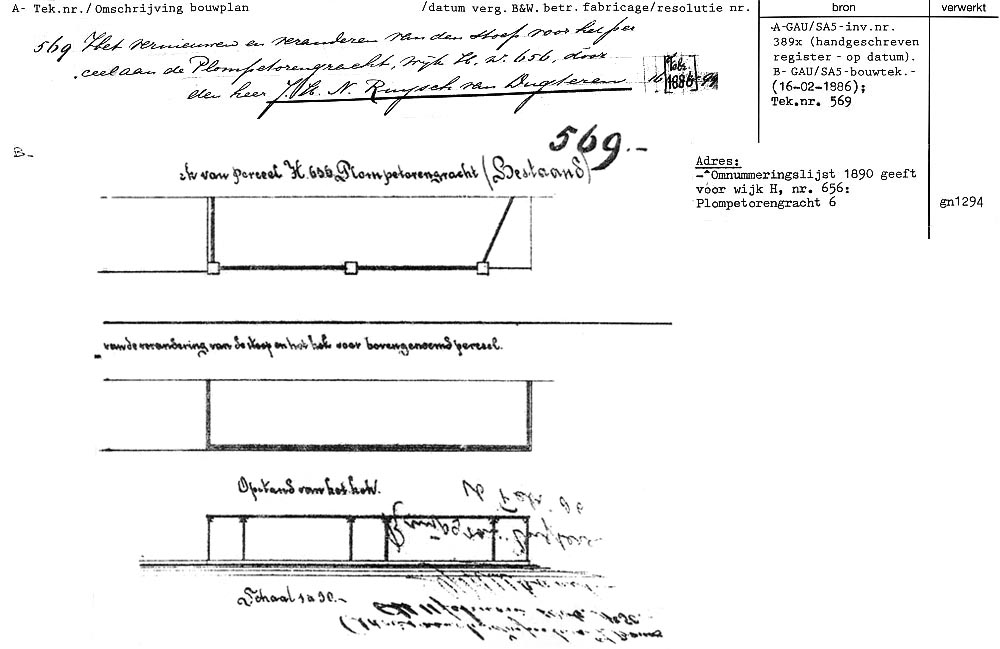 A- Tek.nr./Omschrijving bouwplan /datum verg. B&W. betr. fabricage/resolutie nr. bron verwerkt
569 Het vernieuwen en veranderen van den stoep voor het per
ceel aan de Plompetorengracht, wijk H. n. 656, door
den heer J. Th. N. Ruijsch van Dugteren 16 Febr. 1886
A-GAU/SA5-inv.nr.
389x (handgeschreven
register - op datum).
B- GAU/SA5-bouwtek.-
(16-02-1886);
Tek.nr. 569
B-
569.-
van perceel H. 656 Plompetorengracht (Bestaand)
Adres:
-*Omnummeringslijst 1890 geeft
voor wijk H, nr. 656:
Plompetorengracht 6
gn1294
van de verandering van de stoep en het hek voor bovengenoemd perceel.
Opstand van het hek.
16 Febr. 86
Schaal 1 a 30.-